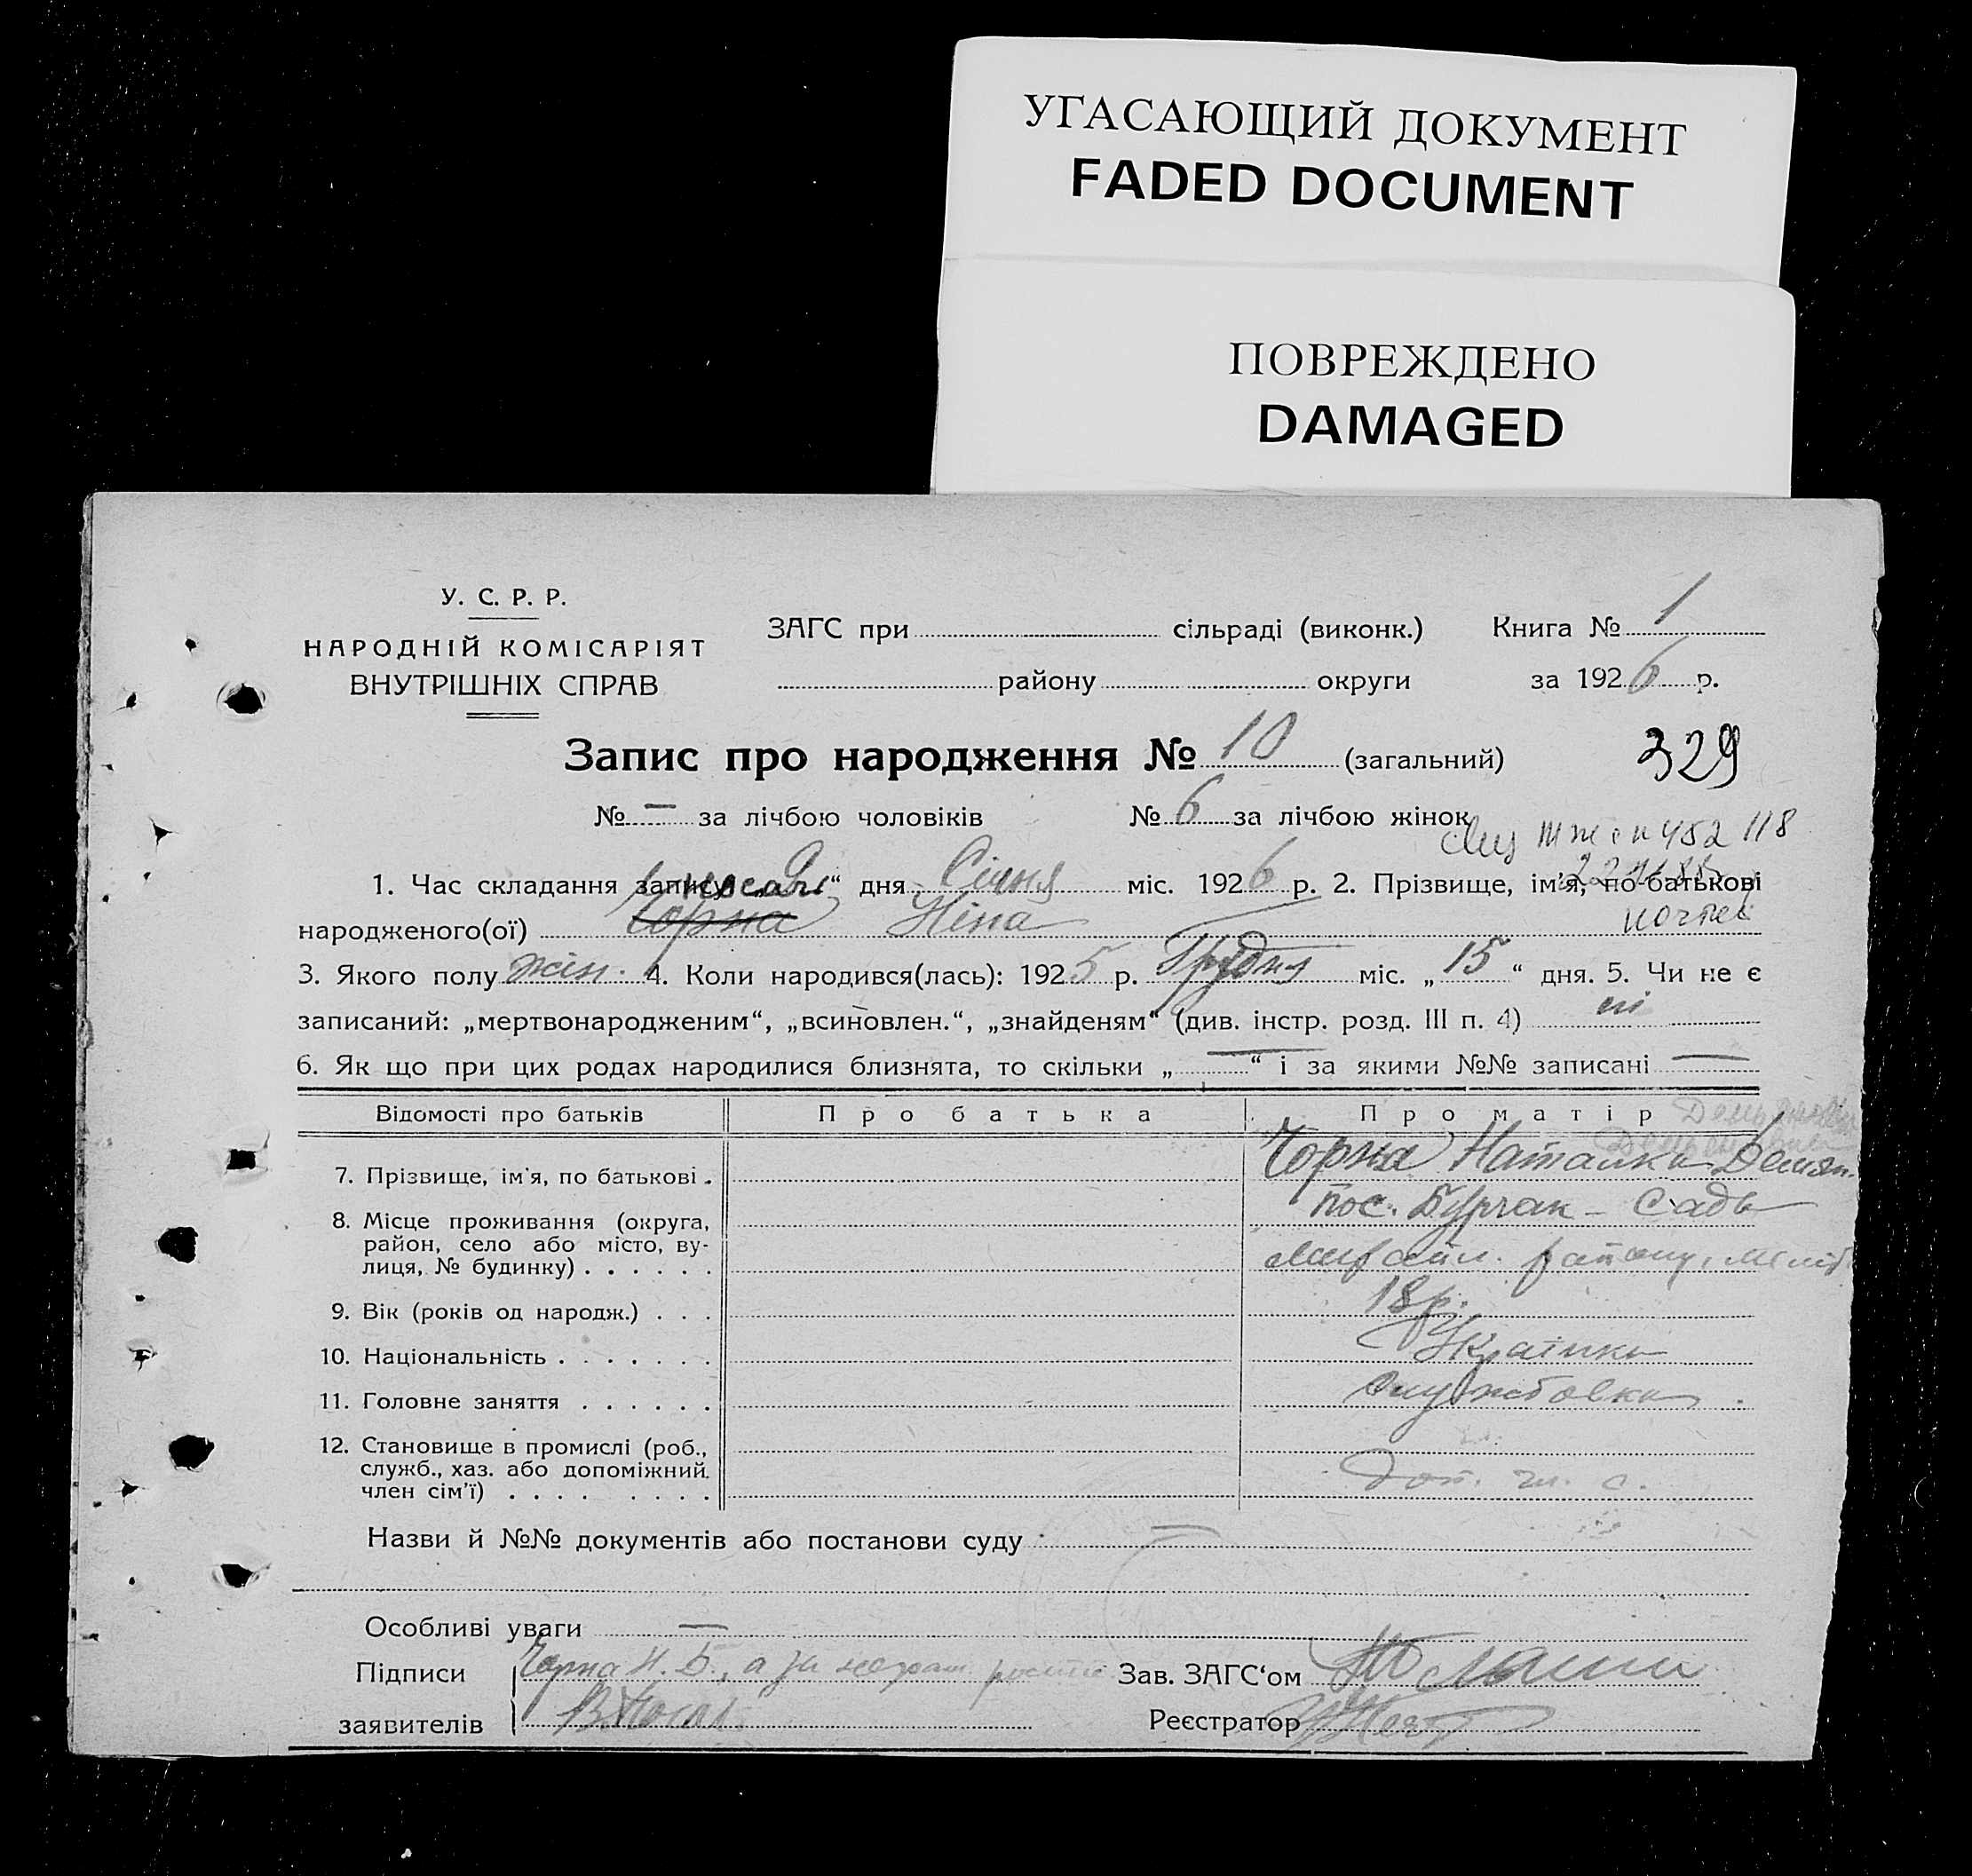 УГАСАЮЩИЙ ДОКУМЕНТ
FADED DOCUMENT
ПОВРЕЖДЕНО
DAMAGED
У. С. Р. Р.
НАРОДНІЙ КОМІСАРІЯТ
ВНУТРІШНІХ СПРАВ
ЗАГС при сільраді (виконк.) Книга № 1
району округи за 1926 р.
Запис про народження № 10 (загальний)
329
№ — за лічбою чоловіків № 6 за лічбою жінок
452 118
1. Час складання запису „ “ дня Січня міс. 1926 р. 2. Прізвище, ім'я, по-батькові
народженого(ої) Чорна Ніна
3. Якого полу жін. 4. Коли народився(лась): 1925 р. Грудня міс. „15“ дня. 5. Чи не є
записаний: „мертвонародженим“, „всиновлен.“, „знайденям“ (див. інстр. розд. III п. 4) ні
6. Як що при цих родах народилися близнята, то скільки „—“ і за якими №№ записані —
Відомості про батьків Про батька Про матір
7. Прізвище, ім'я, по батькові . Чорна Наталка Демян.
8. Місце проживання (округа, район, село або місто, вулиця, № будинку) . . . . . . пос. Бурчак – Сади
9. Вік (років од народж.) . . . 18 р.
10. Національність . . . . . . . Українка
11. Головне заняття . . . . . . службовка
12. Становище в промислі (роб., служб., хаз. або допоміжний член сім'ї) . . . . . . . . доп. чл. с.
Назви й №№ документів або постанови суду —
Особливі уваги —
Підписи Чорна Н. Б., а за
заявителів
Зав. ЗАГС‘ом
Реєстратор